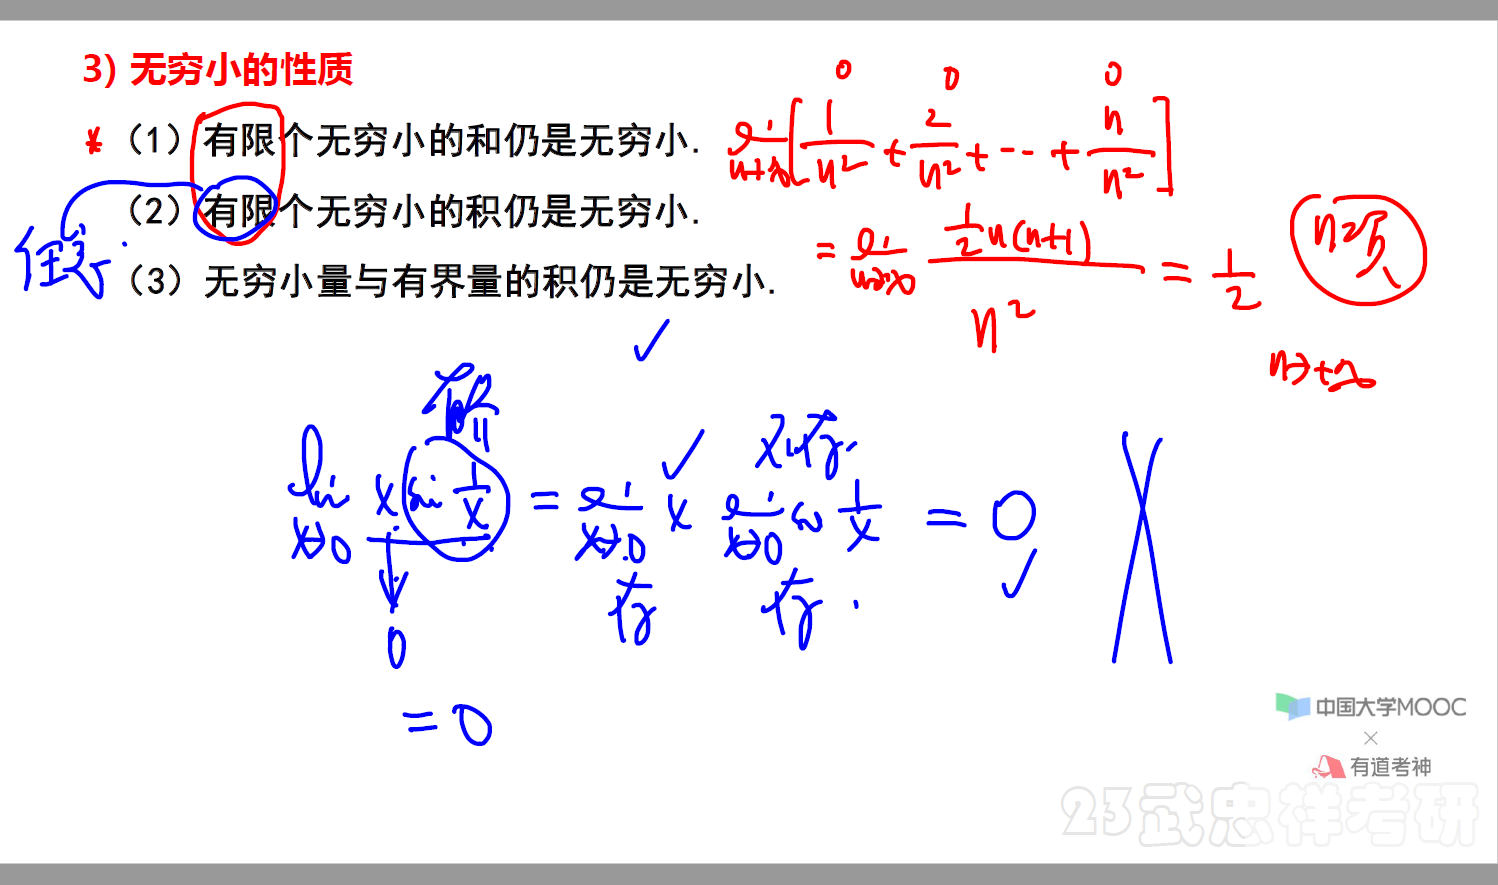 3) 无穷小的性质
*（1）有限个无穷小的和仍是无穷小.
（2）有限个无穷小的积仍是无穷小.
（3）无穷小量与有界量的积仍是无穷小.
0 0 0
lim n→∞ [1/n² + 2/n² + ··· + n/n²]
= lim n→∞ ½n(n+1)/n² = 1/2
n项
n→+∞
✓
有界
不存在
lim x→0 x sin 1/x = lim x→0 x lim x→0 sin 1/x = 0
0
= 0
中国大学MOOC
×
有道考神
23武忠祥考研